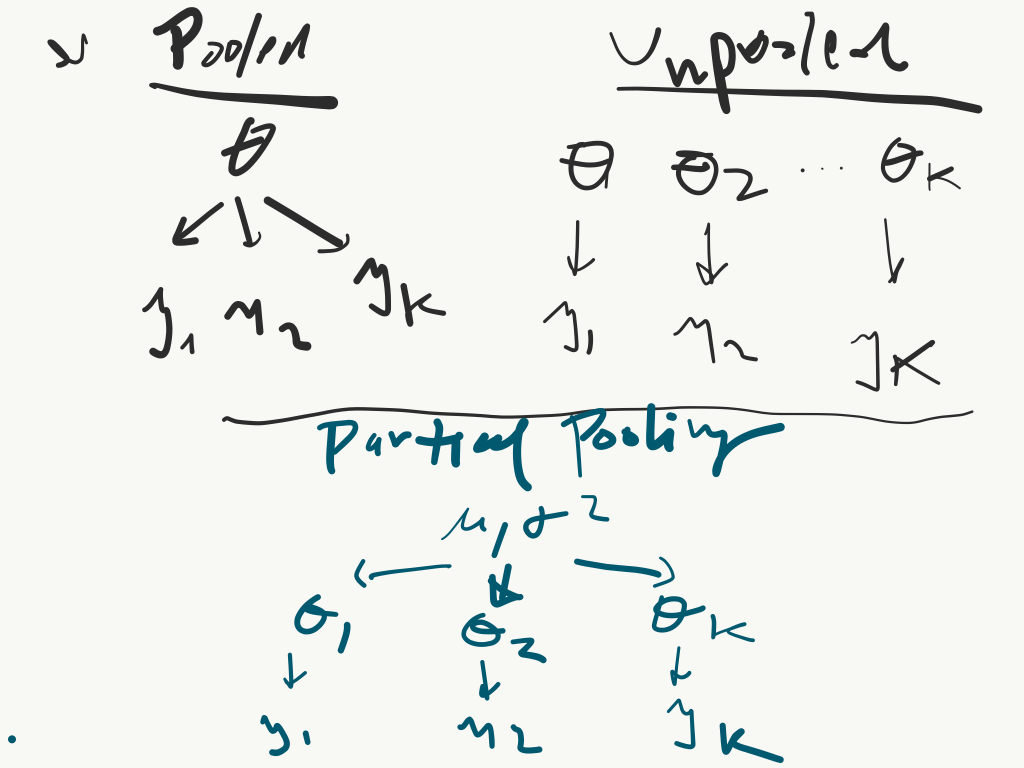 Pooled
θ
y1 y2 yK
Unpooled
θ1 θ2 ... θK
y1 y2 yK
Partial Pooling
μ, σ2
θ1 θ2 θK
y1 y2 yK